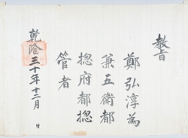 教旨
鄭弘淳為
兼五衛都
摠府都摠
管者
乾隆三十年十二月 日